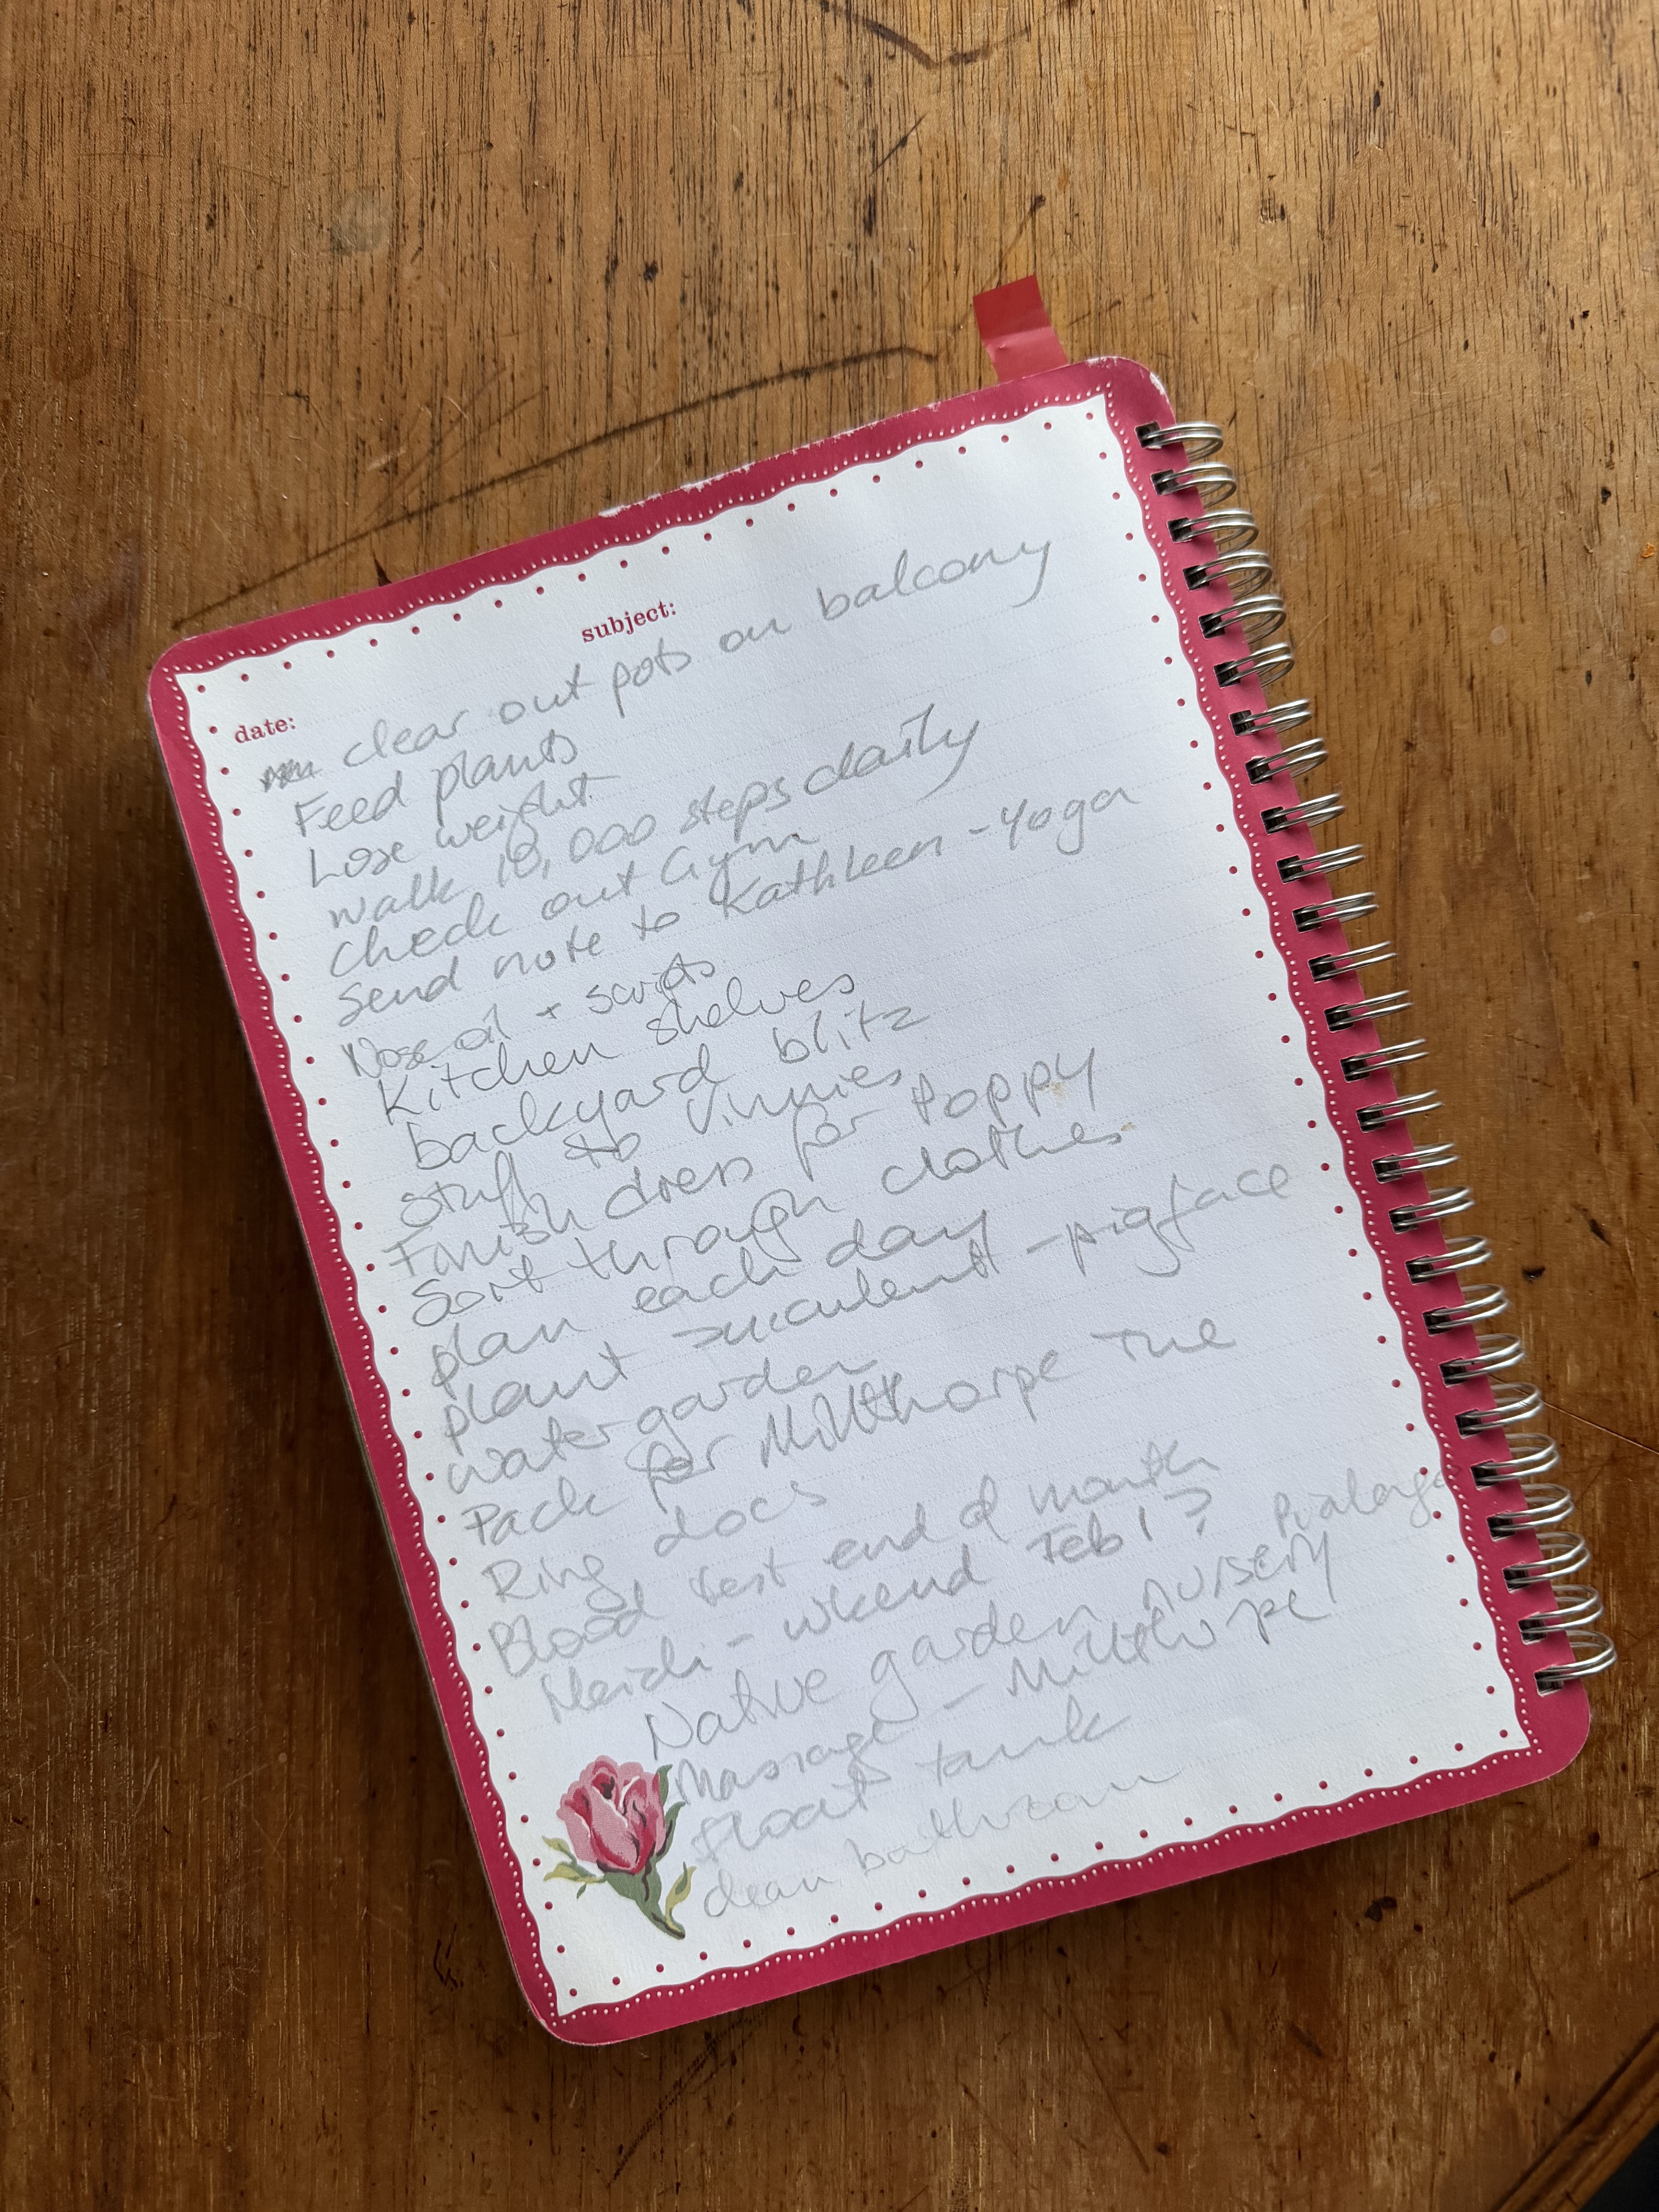 subject:
date:
clear out pots on balcony
Feed plants
Lose weight
walk 10,000 steps daily
check out Gym
Send note to Kathleen - Yoga
Nose oil + scripts
Kitchen shelves
backyard blitz
Stuff to Vinnies
Finish dress for Poppy
Sort through clothes
plan each day
plant succulent - pigface
water garden
Pack for Millthorpe Tue
Ring docs
Blood test end of month
Heidi - wkend Feb 1?
Native garden nursery
Massage - Millthorpe
float tank
clean bathroom